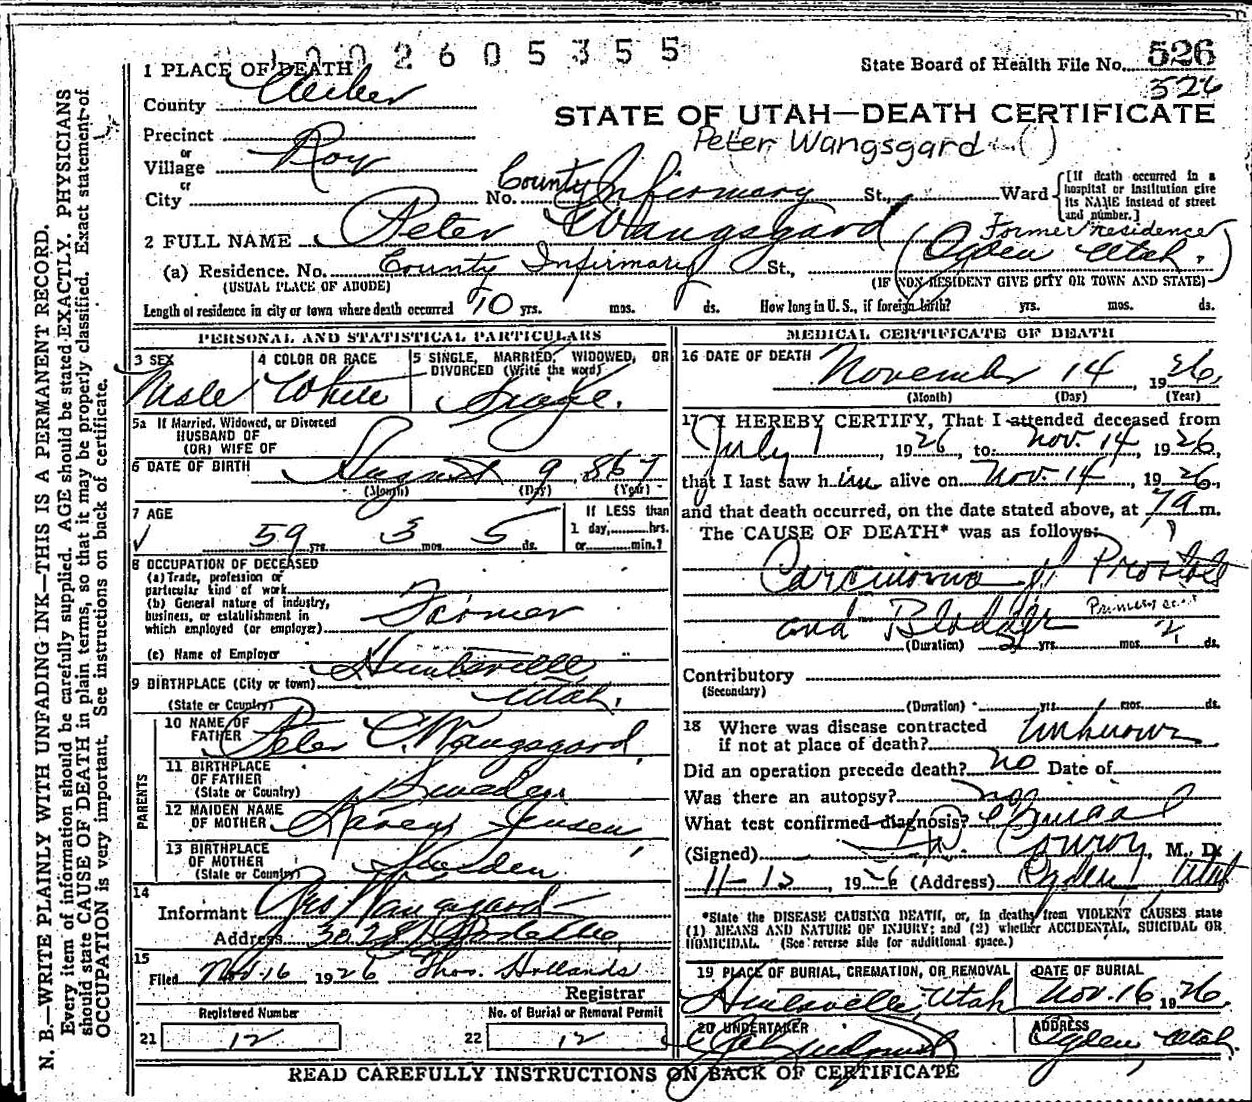 1002605355
State Board of Health File No. 526
326
1 PLACE OF DEATH
County Weber
STATE OF UTAH—DEATH CERTIFICATE
Peter Wangsgard ( )
Precinct
or
Village Roy
or
City No. County Infirmary St., Ward
[If death occurred in a hospital or institution give its NAME instead of street and number.]
2 FULL NAME Peter Wangsgard
Former residence
Ogden Utah.
(a) Residence. No. County Infirmary St.,
(USUAL PLACE OF ABODE) (IF NON-RESIDENT GIVE CITY OR TOWN AND STATE)
Length of residence in city or town where death occurred 10 yrs. mos. ds. How long in U. S., if foreign birth? yrs. mos. ds.
PERSONAL AND STATISTICAL PARTICULARS
3 SEX Male
4 COLOR OR RACE White
5 SINGLE, MARRIED, WIDOWED, OR DIVORCED (Write the word) Single.
5a If Married, Widowed, or Divorced
HUSBAND OF
(OR) WIFE OF
6 DATE OF BIRTH August 9 1867
(Month) (Day) (Year)
7 AGE 59 yrs. 3 mos. 5 ds.
If LESS than
1 day, hrs.
or min.?
8 OCCUPATION OF DECEASED
(a) Trade, profession or
particular kind of work
(b) General nature of industry,
business, or establishment in
which employed (or employer) Farmer
(c) Name of Employer
9 BIRTHPLACE (City or town) Huntsville
(State or Country) Utah.
PARENTS
10 NAME OF
FATHER Peter C. Wangsgard
11 BIRTHPLACE
OF FATHER
(State or Country) Sweden
12 MAIDEN NAME
OF MOTHER Jensen
13 BIRTHPLACE
OF MOTHER
(State or Country) Sweden
14
Informant Wangsgard
Address
15
Filed Nov. 16 1926 Thos. Hollands
Registrar
Registered Number
21 12
No. of Burial or Removal Permit
22 12
MEDICAL CERTIFICATE OF DEATH
16 DATE OF DEATH November 14, 1926
(Month) (Day) (Year)
17 I HEREBY CERTIFY, That I attended deceased from
July 1, 1926, to Nov. 14, 1926,
that I last saw him alive on Nov. 14, 1926,
and that death occurred, on the date stated above, at 7 a m.
The CAUSE OF DEATH* was as follows:
Carcinoma of Prostate
and Bladder
(Duration) 2 yrs. mos. ds.
Contributory
(Secondary)
(Duration) yrs. mos. ds.
18 Where was disease contracted
if not at place of death? Unknown
Did an operation precede death? no Date of
Was there an autopsy? no
What test confirmed diagnosis? Clinical
(Signed) Conroy, M. D.
11-15, 1926 (Address) Ogden Utah
*State the DISEASE CAUSING DEATH, or, in deaths from VIOLENT CAUSES state
(1) MEANS AND NATURE OF INJURY; and (2) whether ACCIDENTAL, SUICIDAL OR
HOMICIDAL. (See reverse side for additional space.)
19 PLACE OF BURIAL, CREMATION, OR REMOVAL
Huntsville, Utah
DATE OF BURIAL
Nov. 16 1926.
20 UNDERTAKER
ADDRESS
Ogden, Utah.
READ CAREFULLY INSTRUCTIONS ON BACK OF CERTIFICATE
N. B.—WRITE PLAINLY WITH UNFADING INK—THIS IS A PERMANENT RECORD.
Every item of information should be carefully supplied. AGE should be stated EXACTLY. PHYSICIANS
should state CAUSE OF DEATH in plain terms, so that it may be properly classified. Exact statement of
OCCUPATION is very important. See instructions on back of certificate.